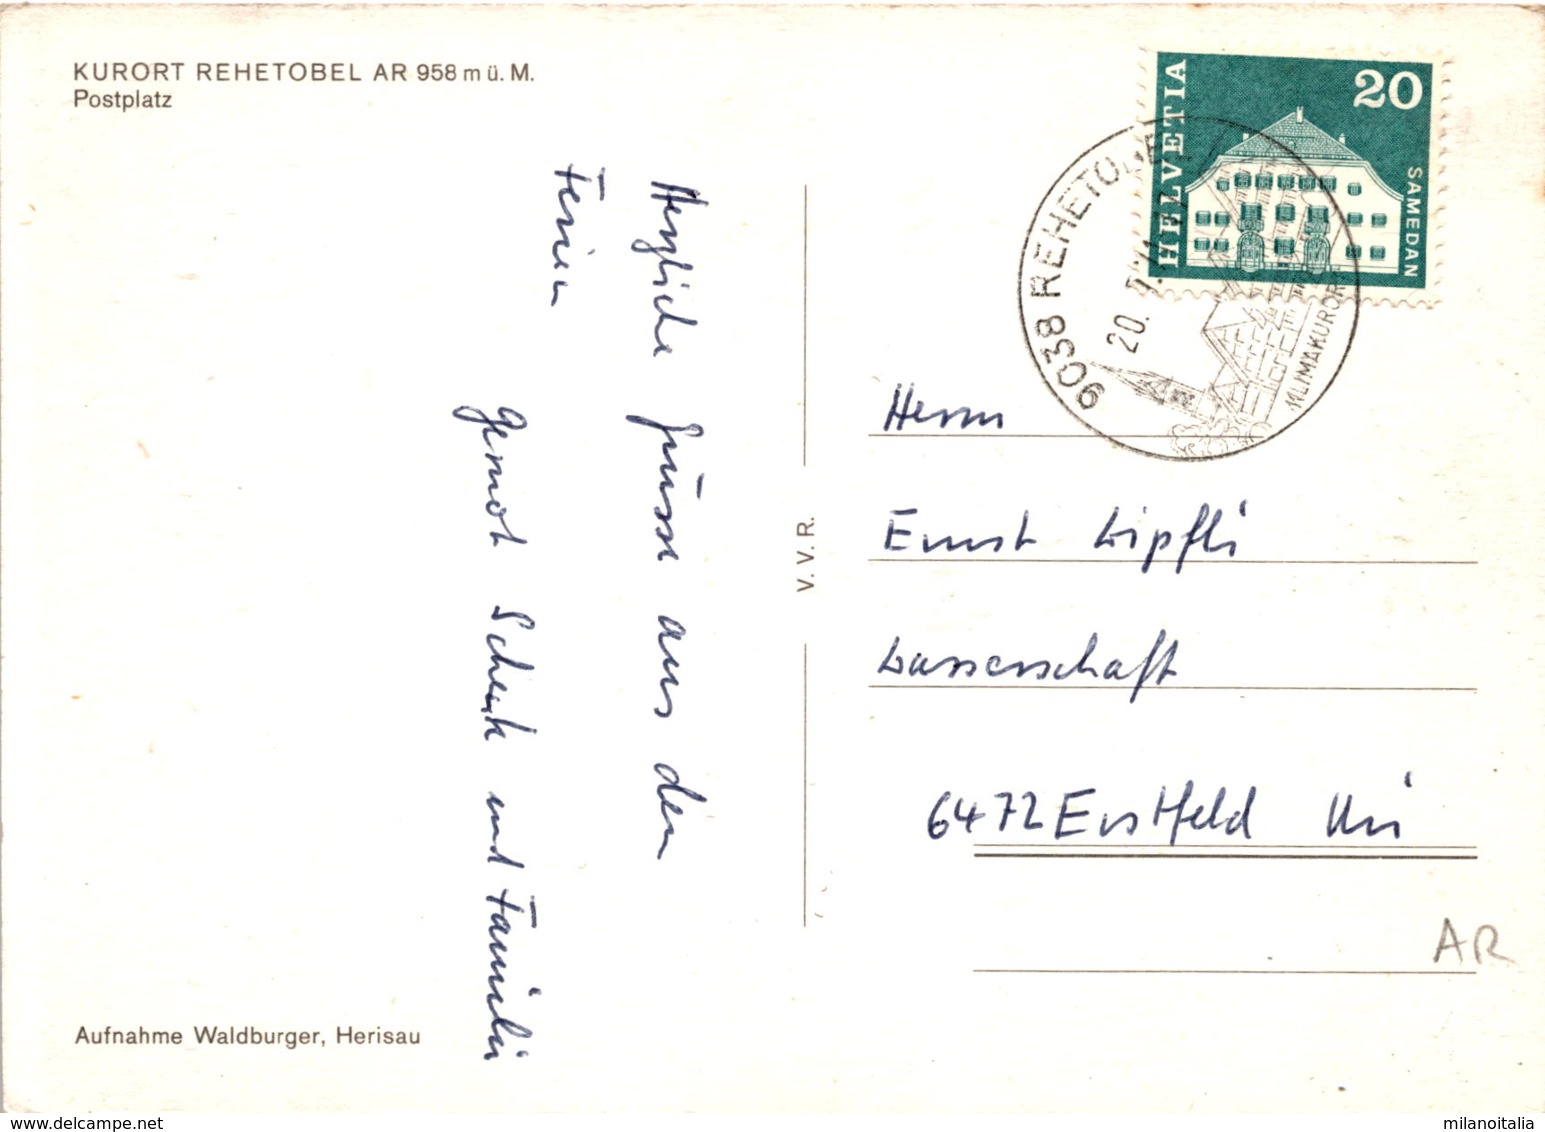 KURORT REHETOBEL AR 958 m ü. M.
Postplatz
Herzliche Grüsse aus den
Ferien
Gernot Schenk und Familie
Aufnahme Waldburger, Herisau
V. V. R.
HELVETIA
20
SAMEDAN
9038 REHETOBEL
20. 7.71
KLIMAKURORT
Herrn
Ernst Wipfli
Wasserschaft
6472 Erstfeld Uri
AR
www.delcampe.net
milanoitalia